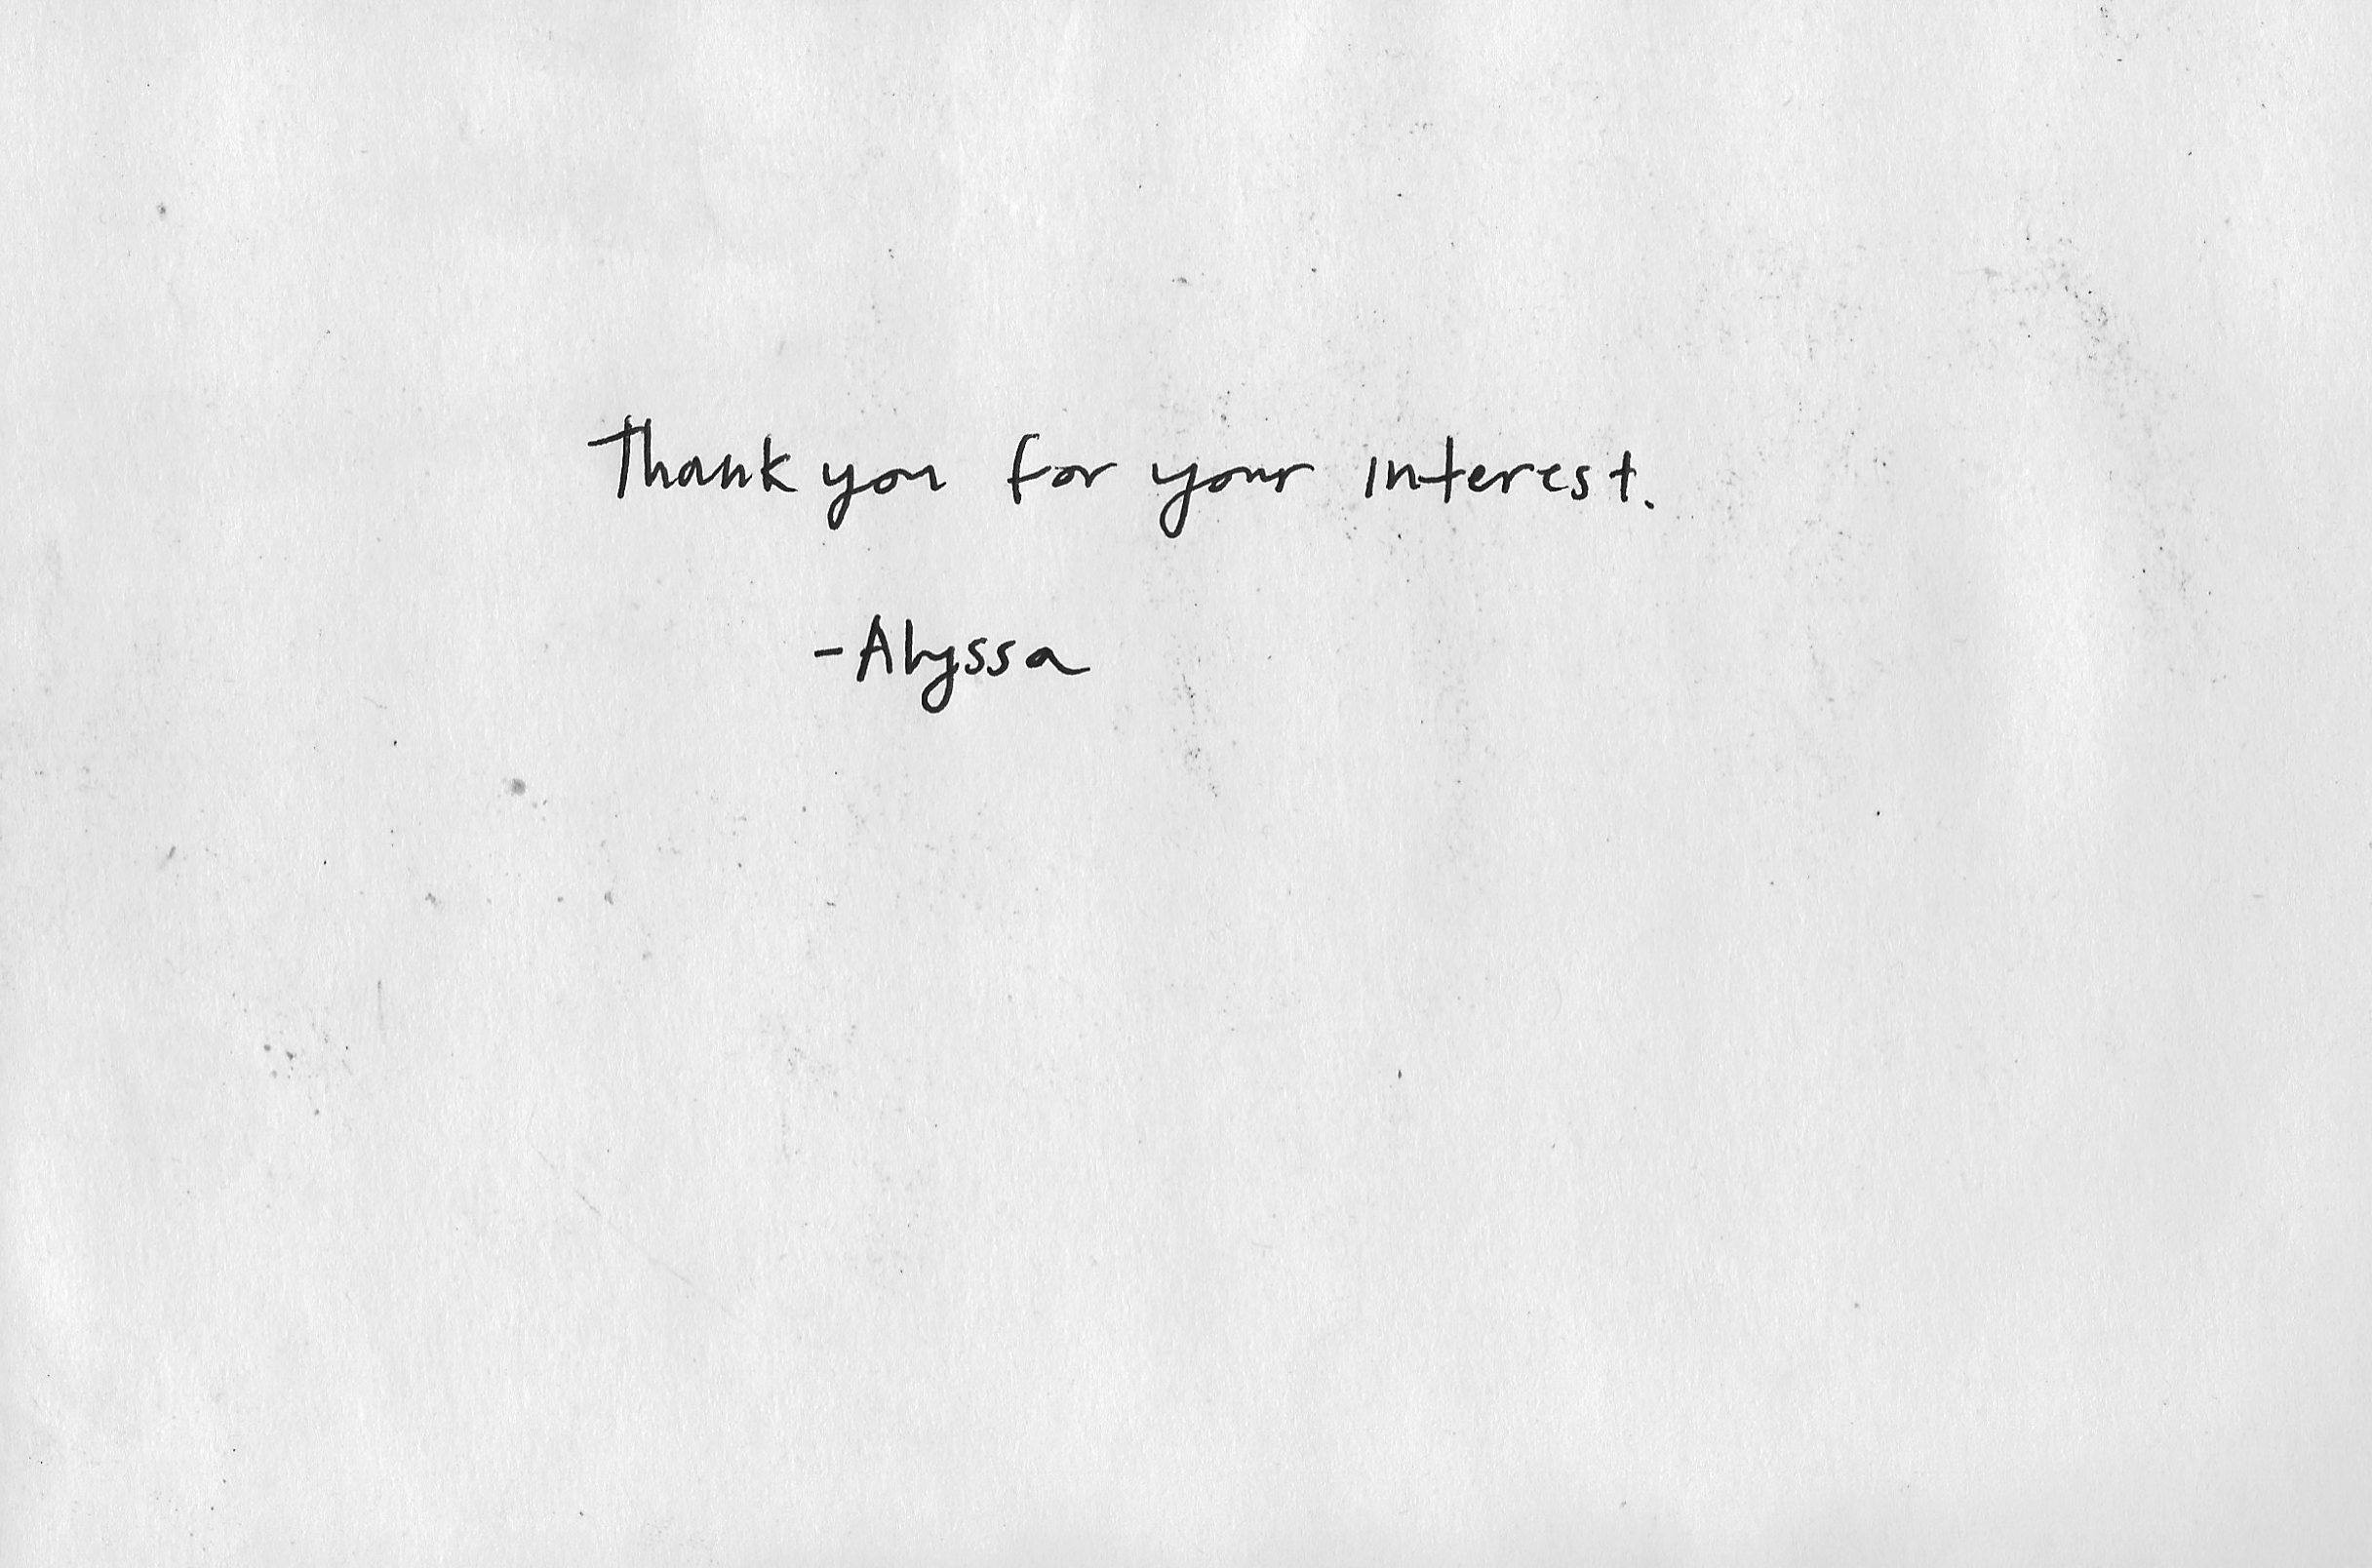 Thank you for your interest.
-Alyssa